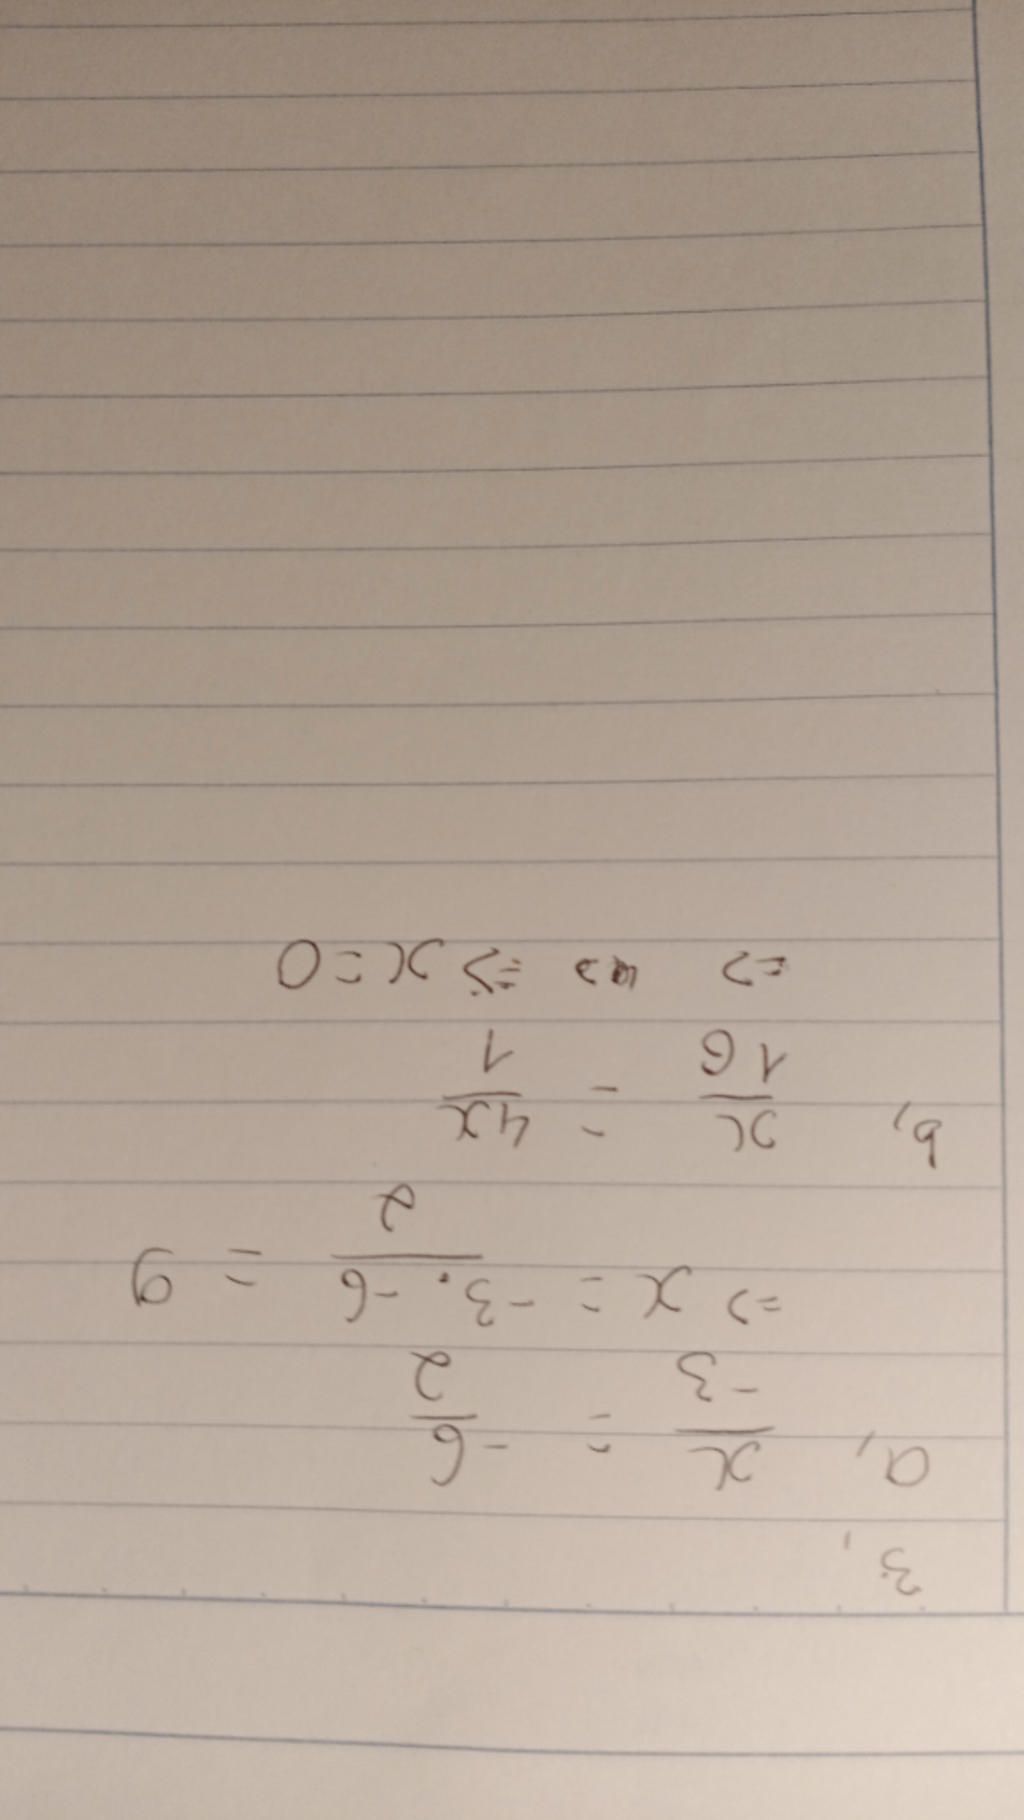 3,
a, x/-3 = -6/2
=> x = -3.-6/2 = 9
b, x/16 = 4x/1
=> => x = 0